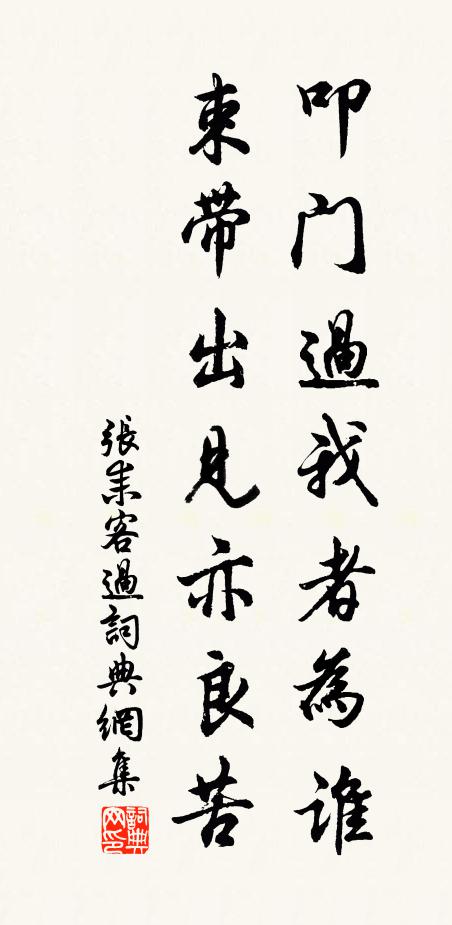 叩门過我者為誰
束帶出見亦良苦
張耒客過詞典網集
詞典网印